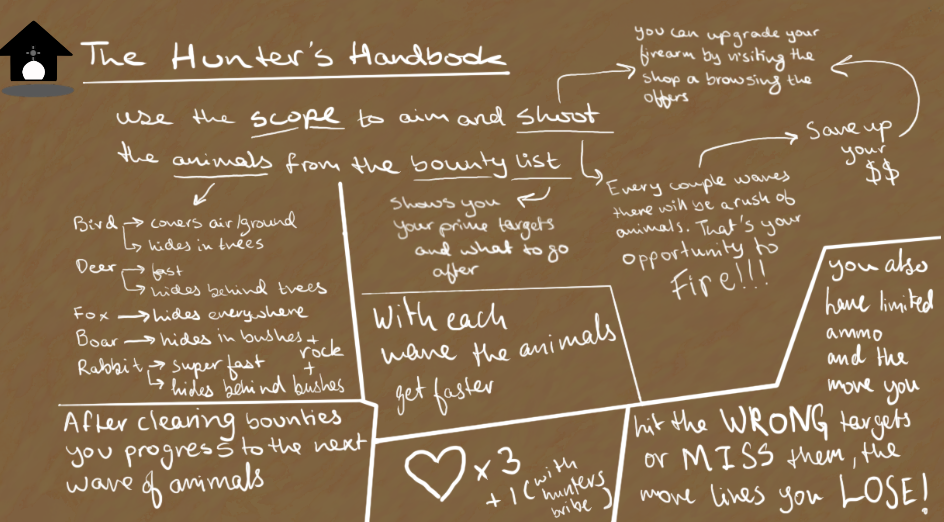 The Hunter's Handbook
use the scope to aim and shoot
the animals from the bounty list
you can upgrade your
firearm by visiting the
shop a browsing the
offers
Save up
your
$$
Every couple waves
there will be a rush of
animals. That's your
opportunity to
Fire!!!
Shows you
your prime targets
and what to go
after
Bird → covers air/ground
↳ hides in trees
Deer → fast
↳ hides behind trees
Fox → hides everywhere
Boar → hides in bushes +
rock
+
Rabbit → super fast
↳ hides behind bushes
With each
wave the animals
get faster
you also
have limited
ammo
and the
more you
hit the WRONG targets
or MISS them, the
more lives you LOSE!
After clearing bounties
you progress to the next
wave of animals
♡ x 3
+ 1 (with
hunters
bribe)